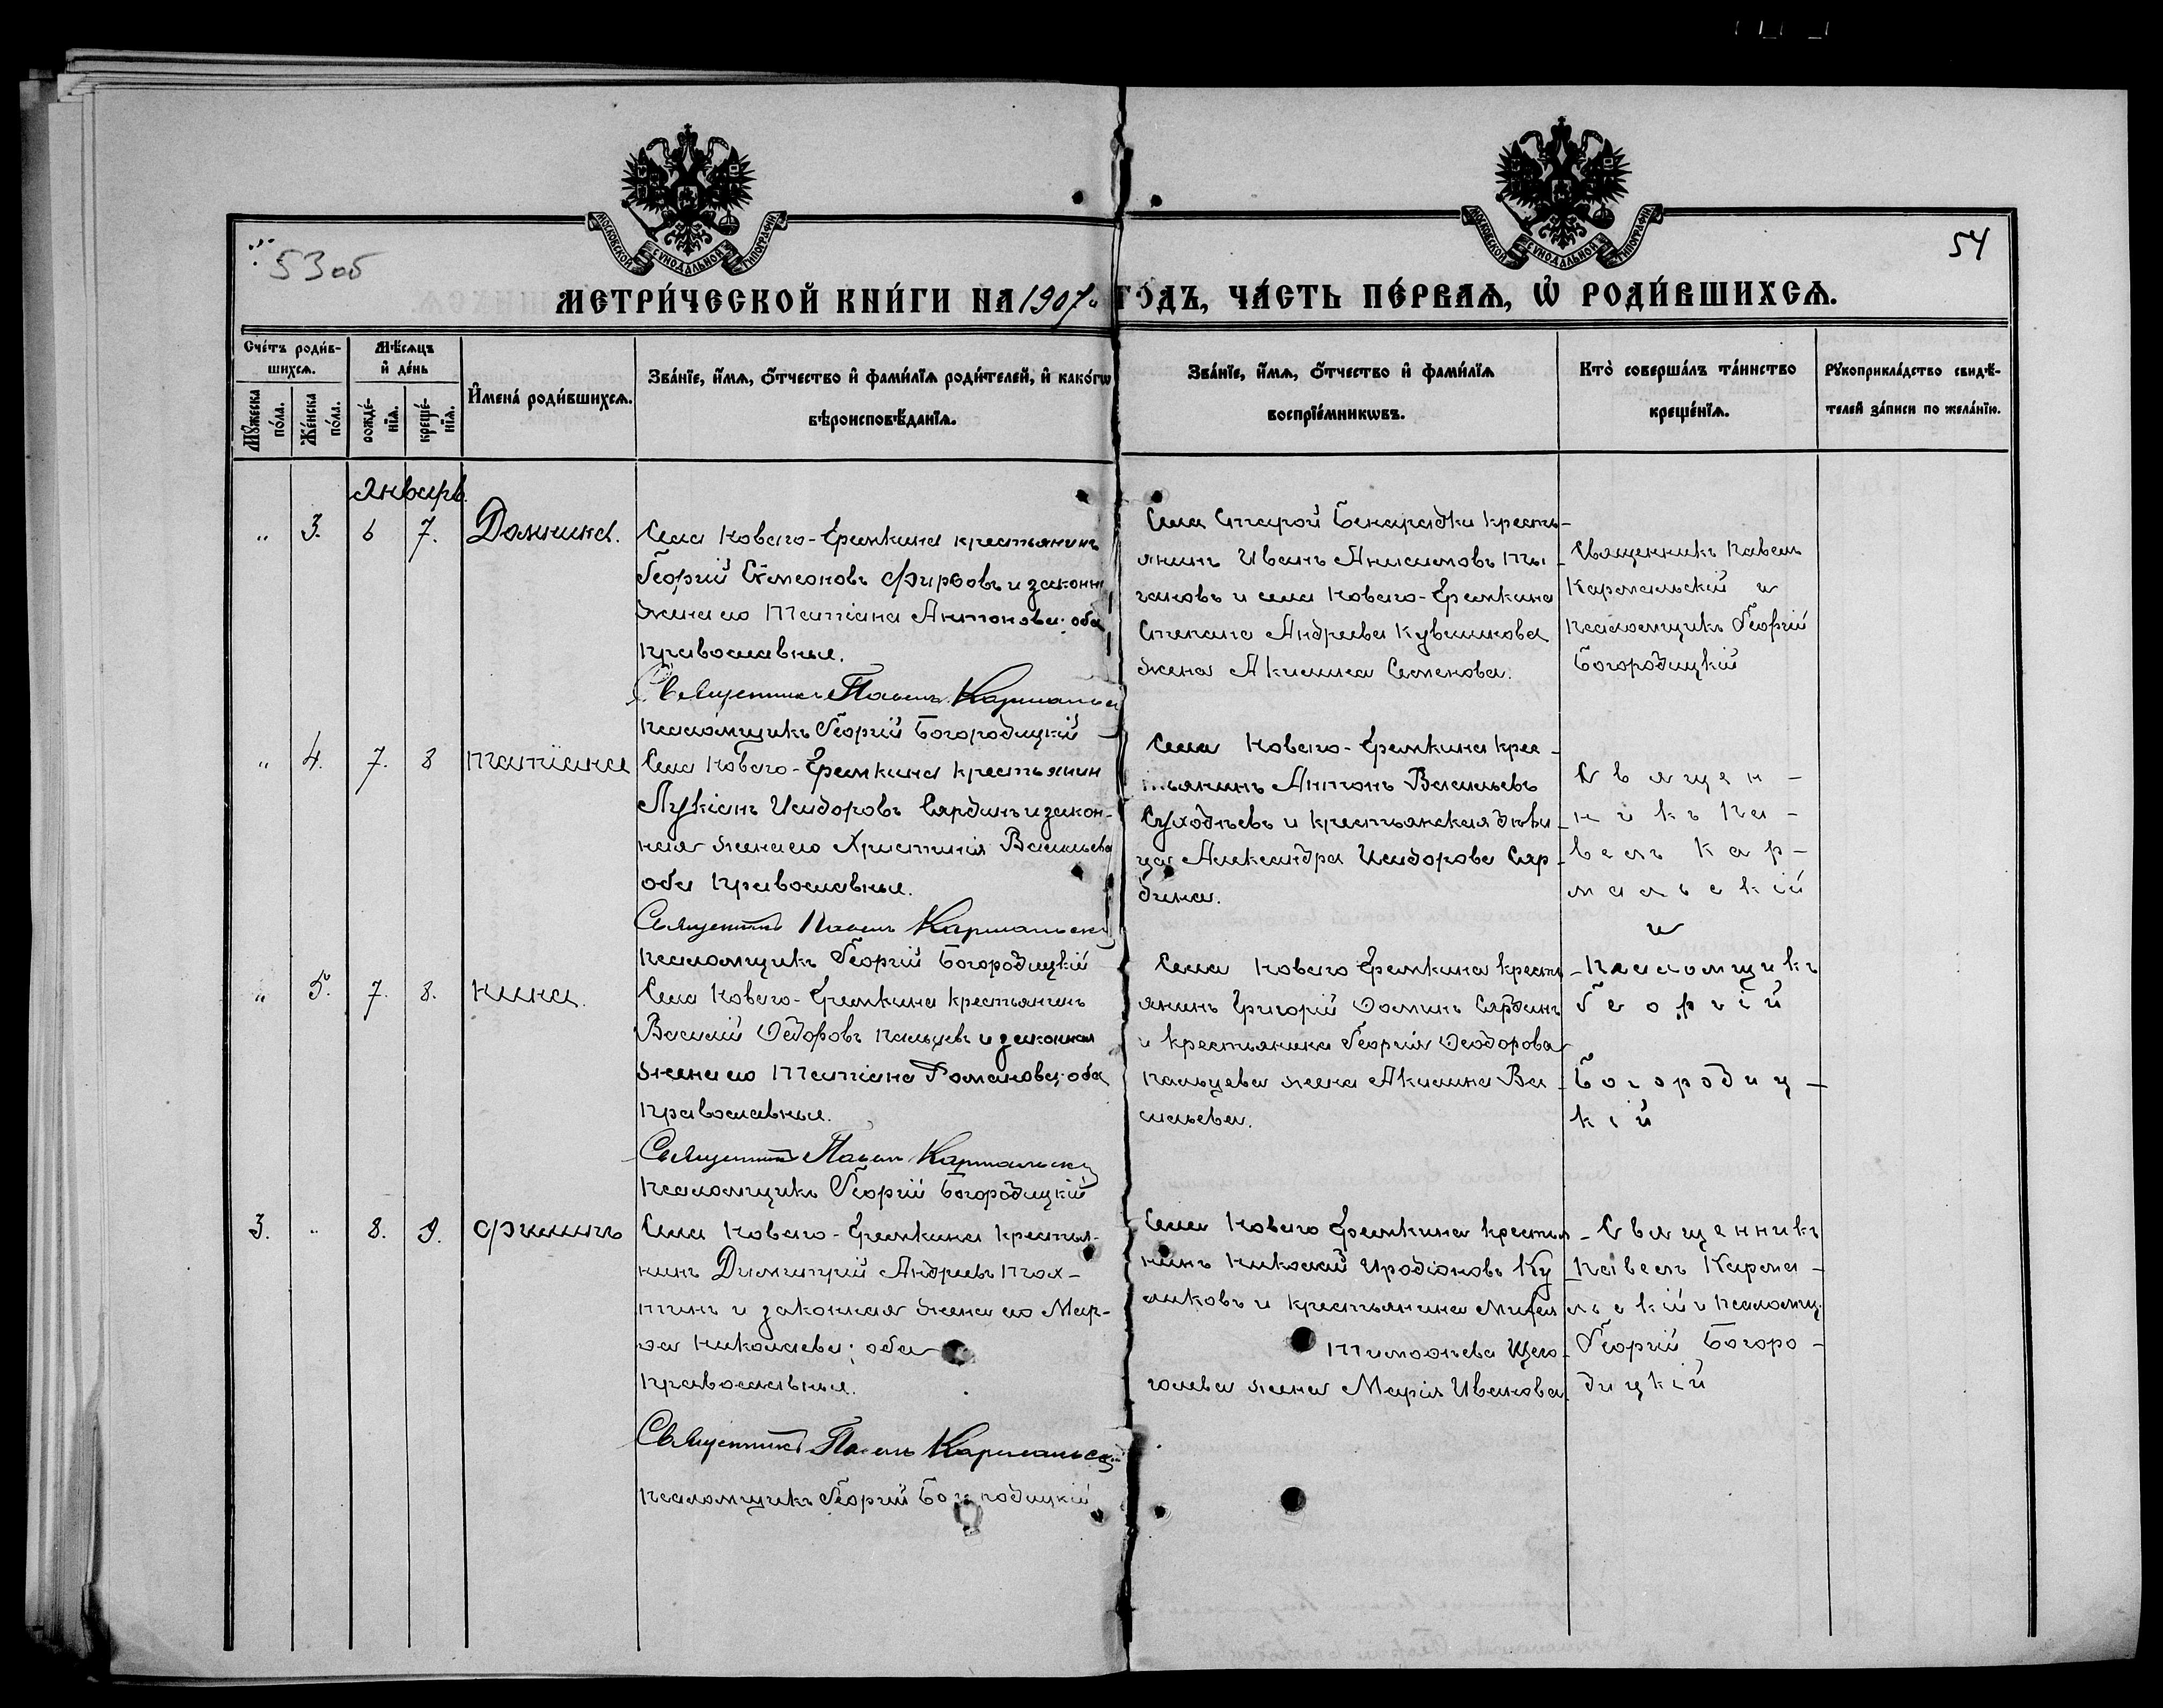 53 об
54
МОСКОВСКОЙ СѴНОДАЛЬНОЙ ТИПОГРАФІИ
МОСКОВСКОЙ СѴНОДАЛЬНОЙ ТИПОГРАФІИ
МЕТРИ́ЧЕСКОЙ КНИ́ГИ НА 1907 й ГО́ДЪ, ЧА́СТЬ ПЕ́РВАѦ, Ѡ҆ РОДИ́ВШИХСѦ.
Сче́тъ роди́в-
шихсѧ.
Мꙋ́жеска по́ла.
Же́нска по́ла.
Мѣ́сѧцъ и҆ де́нь
рожде́-нїѧ.
креще́-нїѧ.
И҆мена̀ роди́вшихсѧ.
Зва́нїе, и҆́мѧ, ѻ҆́тчество и҆ фами́лїѧ роди́телей, и҆ како́гѡ
вѣроисповѣ́данїѧ.
Зва́нїе, и҆́мѧ, ѻ҆́тчество и҆ фами́лїѧ
воспрїе́мникѡвъ.
Кто̀ соверша́лъ та́инство
креще́нїѧ.
Рꙋкоприкла́дство свидѣ́-
телей за́писи по жела́нїю.
Январь.
" 3. 6 7. Домника.
Села Новаго-Еремкина крестьянинъ
Георгій Симеоновъ Фирсовъ и законн
жена его Татіана Антонова; оба
православные.
Священникъ Павелъ Кармальск
Псаломщикъ Георгій Богородицкій
Села Старой Бинарадки кресть-
янинъ Иванъ Анисимовъ Цы-
гановъ и села Новаго-Еремкина
Степана Андреева Кувшинова
жена Акилина Семенова.
Священникъ Павелъ
Кармальскій и
Псаломщикъ Георгій
Богородицкій
" 4. 7. 8 Татіана
Села Новаго-Еремкина крестьянин
Лукіанъ Исидоровъ Сярдинъ и закон-
ная жена его Христинія Васильева
оба православные.
Священникъ Павелъ Кармальск
Псаломщикъ Георгій Богородицкій
Села Новаго-Еремкина крес-
тьянинъ Антонъ Васильевъ
Суходѣевъ и крестьянская дѣви-
ца Александра Исидорова Сяр-
дина.
Священ-
никъ Па-
велъ Кар-
мальскій
и
Псаломщикъ
Георгій
Богородиц-
кій
" 5. 7. 8. Нина.
Села Новаго-Еремкина крестьянинъ
Василій Ѳедоровъ Пальцевъ и законная
жена его Татіана Романова; оба
православные.
Священникъ Павелъ Кармальскій
Псаломщикъ Георгій Богородицкій
Села Новаго Еремкина кресть-
янинъ Григорій Ѳоминъ Сярдинъ
и крестьянина Георгія Ѳеодорова
Пальцева жена Акилина Ва-
сильева.
3. " 8. 9. Филиппъ
Села Новаго-Еремкина крестья-
нинъ Димитрій Андреевъ Тох-
тинъ и законная жена его Мар-
ѳа Николаева; оба
православные.
Священникъ Павелъ Кармальскій
Псаломщикъ Георгій Богородицкій
Села Новаго Еремкина крестья-
нинъ Николай Иродіоновъ Ку
ликовъ и крестьянина
Тимоѳеева Щего-
голева жена Марія Иванова
Священникъ
Павелъ Карма-
льскій и Псаломщ.
Георгій Богоро-
дицкій